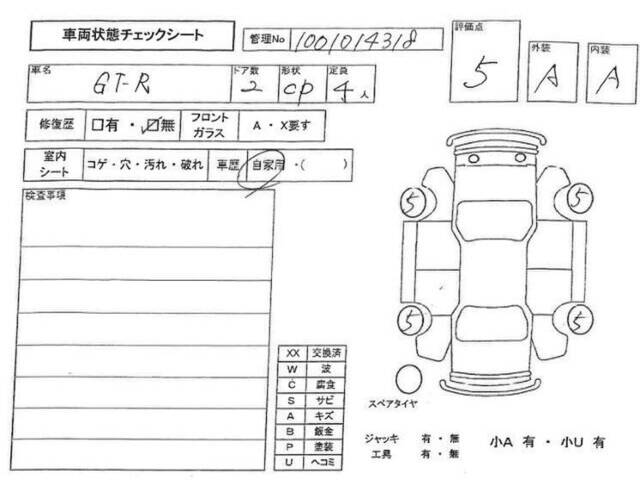 車両状態チェックシート
管理No 1001014318
評価点 5
外装 A
内装 A
車名 GT-R
ドア数 2
形状 CP
定員 4人
修復歴 □有・☑無
フロントガラス A・X要す
室内シート コゲ・穴・汚れ・破れ
車歴 自家用・( )
検査事項
5
5
5
5
XX 交換済
W 波
C 腐食
S サビ
A キズ
B 鈑金
P 塗装
U ヘコミ
スペアタイヤ
ジャッキ 有・無
工具 有・無
小A 有・小U 有